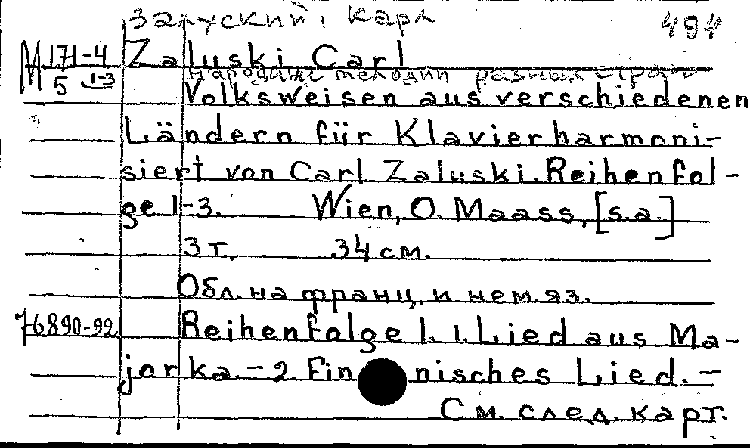 Заруский, Карл 494
М 171-4 Zaluski, Carl
5 1-3 Народные мелодии разных стран
Volksweisen aus verschiedenen
Ländern für Klavier harmoni-
siert von Carl Zaluski. Reihenfol-
ge 1-3. Wien, O. Maass, [s.a.]
3 т. 34 см.
Обл. на франц. и нем. яз.
76890-92 Reihenfolge 1. 1. Lied aus Ma-
jorka - 2. Fin nisches Lied. -
См. след. карт.